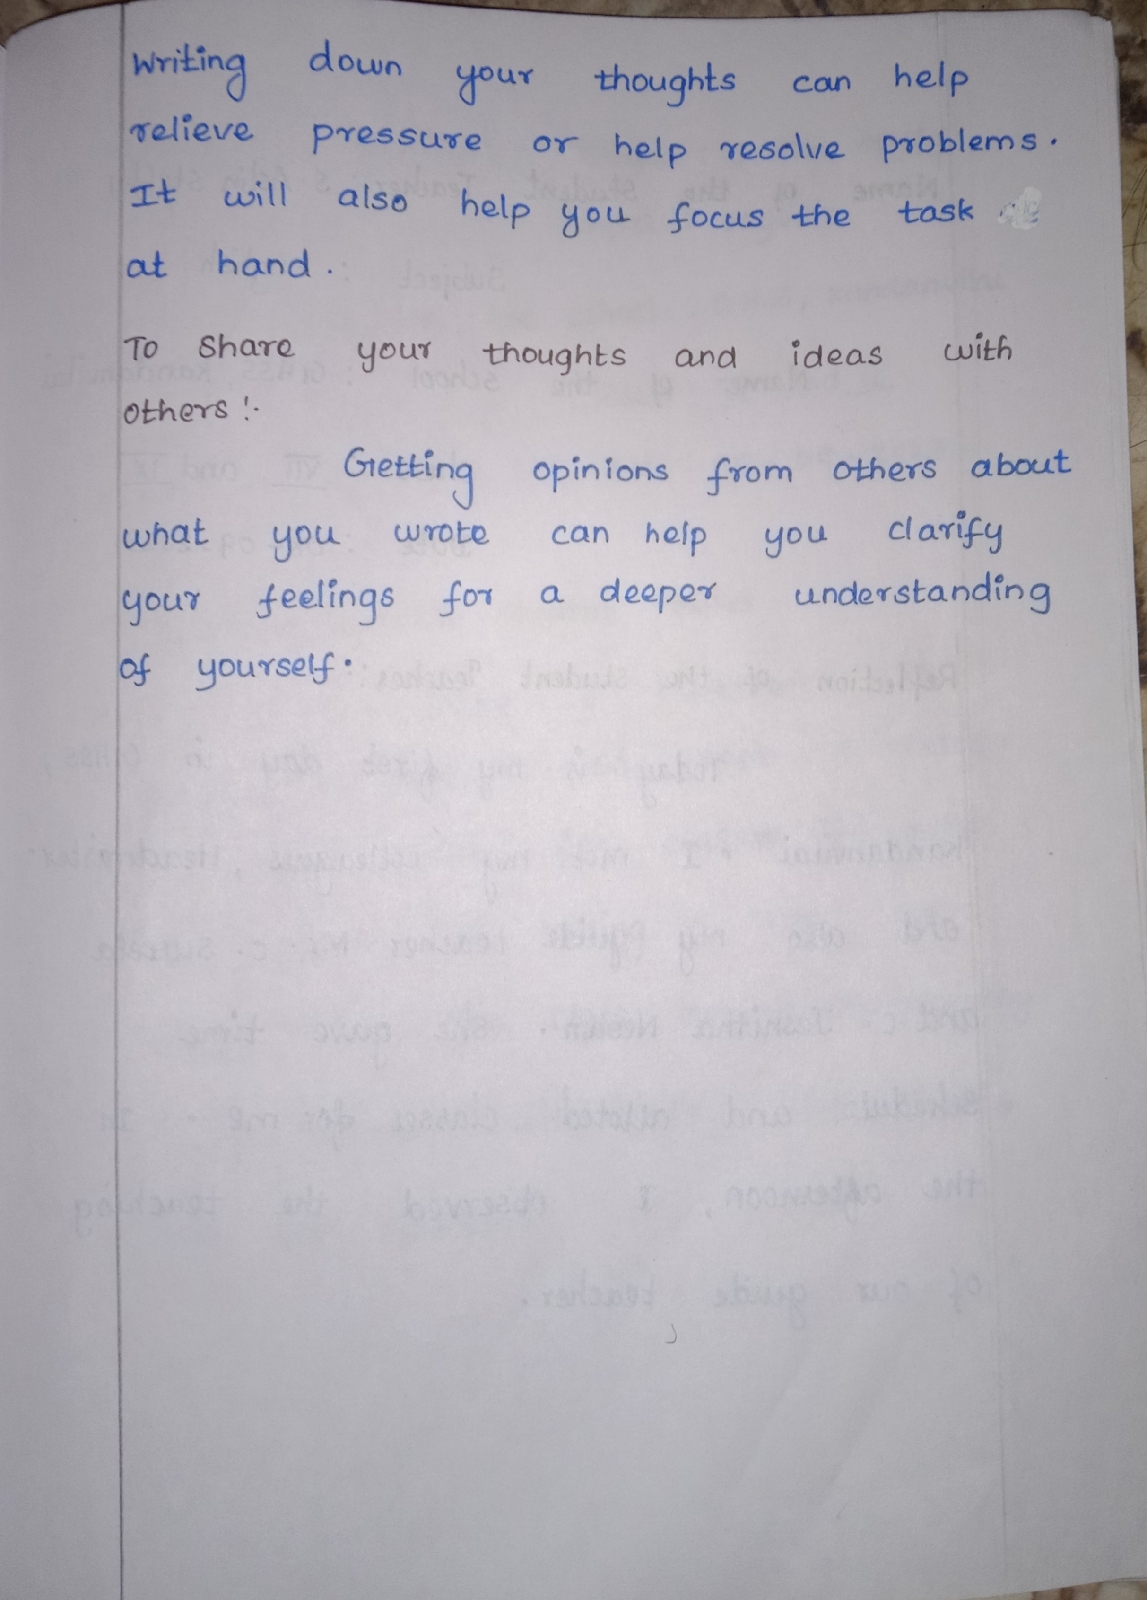 Writing down your thoughts can help
relieve pressure or help resolve problems.
It will also help you focus the task
at hand.
To Share your thoughts and ideas with
others :-
Getting opinions from others about
what you wrote can help you clarify
your feelings for a deeper understanding
of yourself.